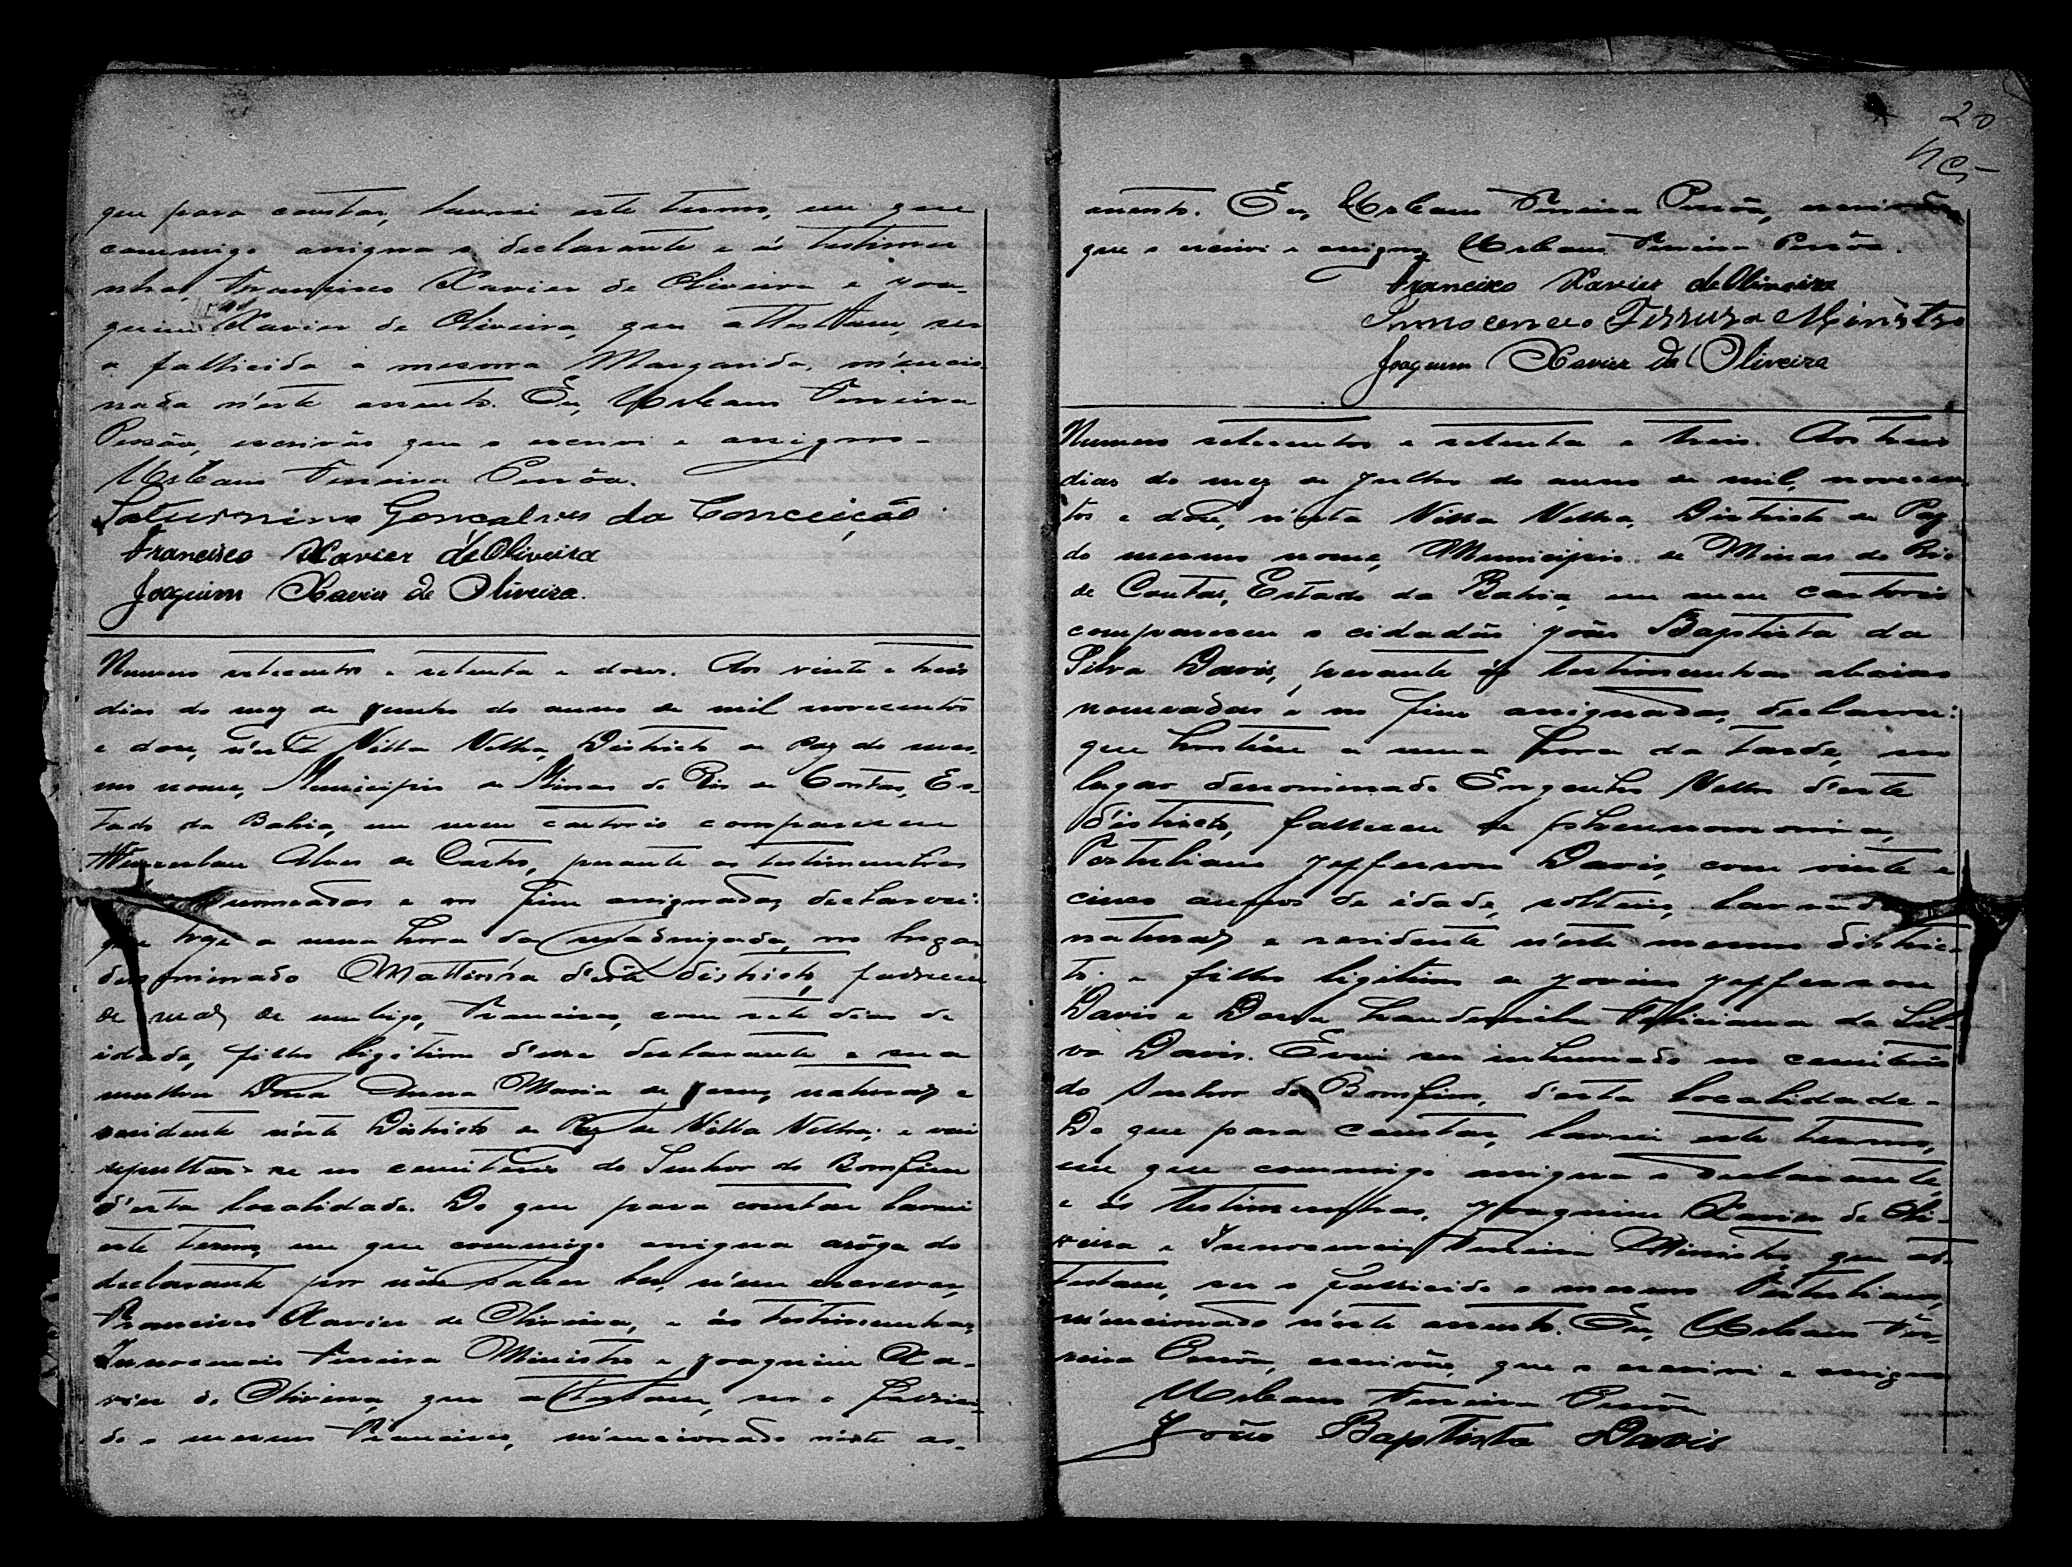 que para constar, lavrei este termo, em que
commigo assigna o declarante e ás testimu
nhas, Francisco Xavier de Oliveira e Joa-
quim Xavier de Oliveira, que attestam, ser
a fallicida a mesma Margarida, méncio
nada n'este assento. Eu, Urbano Ferreira
Pessôa, escrivão que o escrevi e assigno-
Urbano Ferreira Pessôa.
Saturnino Gonçalves da Conceição
Francisco Xavier de Oliveira
Joaquim Xavier de Oliveira.
Numero setecentos e setenta e dous. Aos vinte e treis
dias do mez de Junho do anno de mil novecentos
e doze, n'esta Villa Velha, Districto de Paz do mes-
mo nome, Municipio de Minas do Rio de Contas, Es-
tado da Bahia, em meu cartorio compareceu
Alves de Castro, perante as testimunhas
nomeadas e no fim assignadas, declarou:
que hoje a uma hora da madrugada, no lugar
denominado Mattinha d'este districto, falleceu
de mal de umbigo, Francisco, com sete dias de
idade, filho ligitimo d'esse declarante e sua
mulher Dona Anna Maria de Jesus, naturaes e
residente n'este Districto de Paz de Villa Velha; e vai
sepultar-se no cemiterio do Senhor do Bomfim
d'esta localidade. Do que para constar lavrei
este termo, em que commigo assigna arôgo do
declarante por não saber ler, n'em escrever,
Francisco Xavier de Oliveira, e ás testimunhas,
Innocencio Ferreira Ministro e Joaquim Xa-
vier de Oliveira, que attestam, ser o fallici-
do o mesmo Francisco, méncionado n'este as-
20
sento. Eu, Urbano Ferreira Pessôa, escrivão
que o escrevi e assigno, Urbano Ferreira Pessôa.
Francisco Xavier de Oliveira
Innocencio Ferrera Ministro
Joaquim Xavier de Oliveira
Numero setecentos e setenta e treis. Aos treis
dias do mez de Julho do anno de mil, novecen
tos e doze, n'esta Villa Velha, Districto de Paz
do mesmo nome, Municipio de Minas do Rio
de Contas, Estado da Bahia, em meu cartorio
compareceu o cidadão João Baptista da
Silva Davis, perante ás testimunhas abaixo
nomeadas e no fim assignadas, declarou:
que hontém a uma hora da tarde, no
lugar denominado Engenho Velho d'este
districto, falleceu de
Tertuliano Jefferson Davis, com vinte e
cinco annos de idade, solteiro,
natural e residente n'este mesmo distric
to e filho ligitimo de Jovino Jefferson
Davis e Dona Feliciana da Sil-
va Davis. E vai ser inhumado no cemiterio
do Senhor do Bomfim, d'esta localidade-
Do que para constar, lavrei este termo,
em que commigo assigna o declarante
e ás testimunhas, Joaquim Xavier de Oli-
veira e Innocencio Ferreira Ministro, que at-
testam, ser o fallicido o mesmo Tertuliano,
méncionado n'este assento. Eu, Urbano Fer-
reira Pessôa, escrivão, que o escrevi e assigno
Urbano Ferreira Pessôa
João Baptista Davis